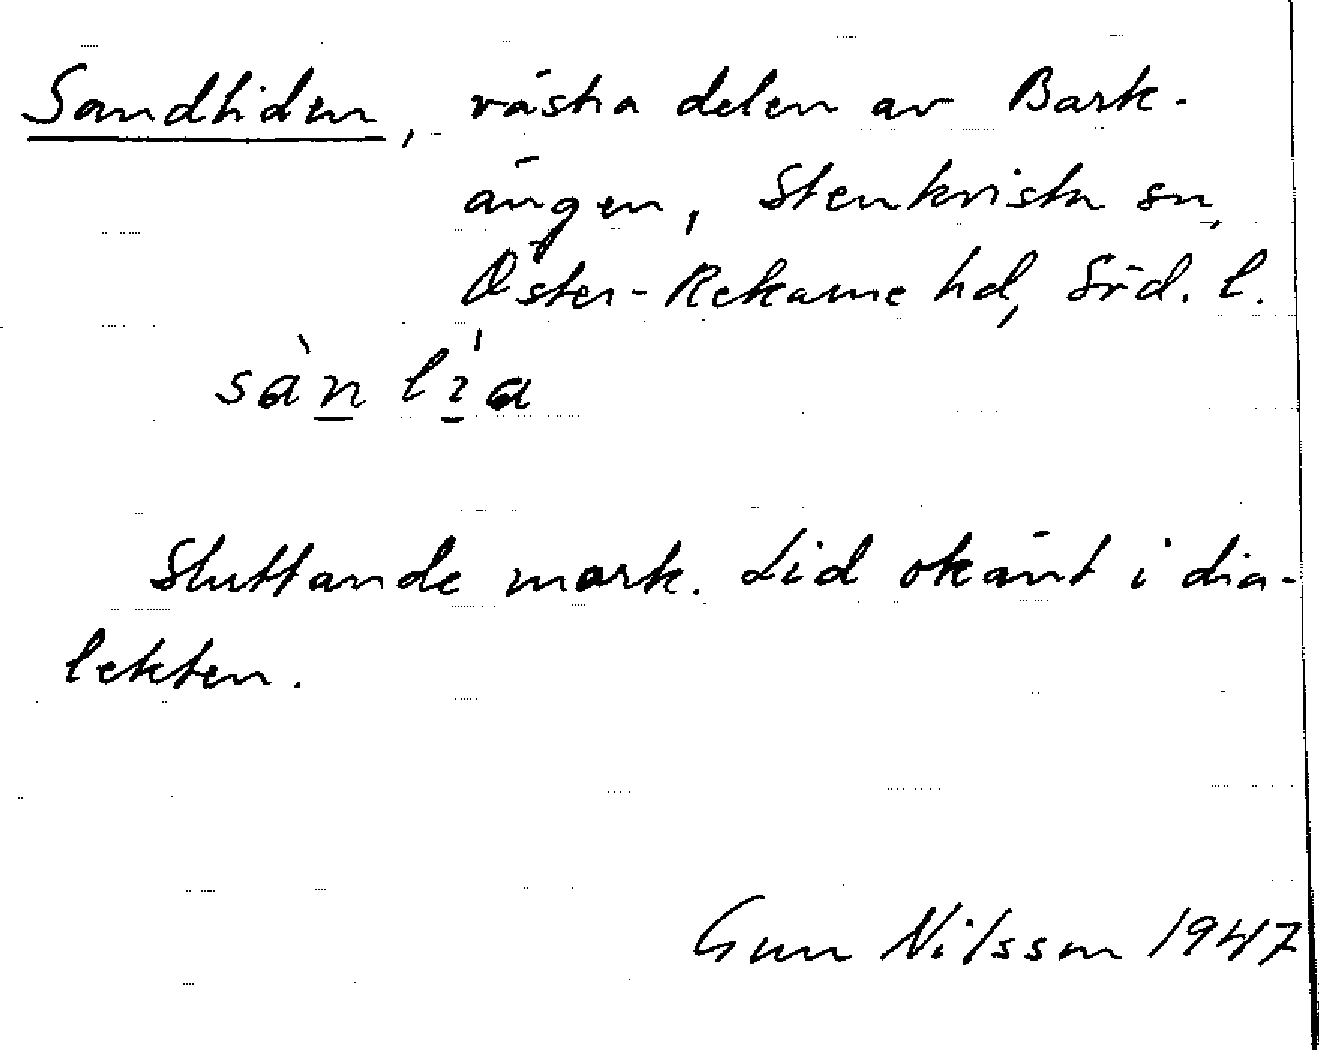 Sandliden, västra delen av Bark-
ängen, Stenkvista sn,
Öster-Rekarne hd, Söd. l.
sàn lı̀a
Sluttande mark. Lid okänt i dia-
lekten.
Gun Nilsson 1947